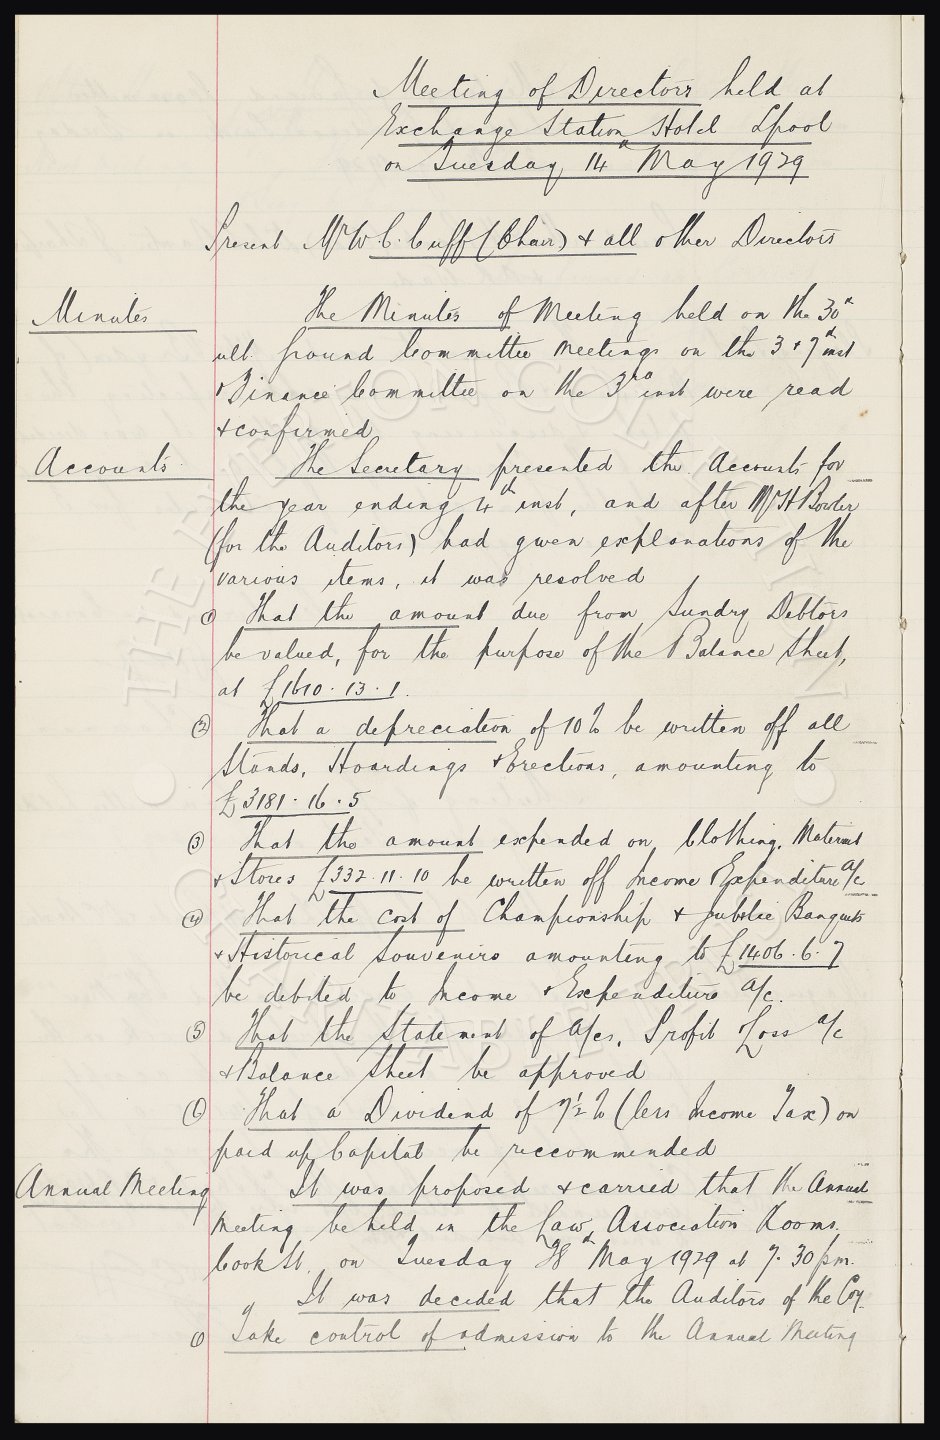 Meeting of Directors held at
Exchange Station Hotel Lpool
on Tuesday 14th May 1929
Present Mr W. C. Cuff (Chair) & all other Directors
Minutes
The Minutes of Meeting held on the 30th
ult. Ground Committee Meetings on the 3 & 7th inst
& Finance Committee on the 3rd inst were read
& confirmed
Accounts
The Secretary presented the Accounts for
the year ending 4th inst, and after Mr H Bowler
(for the Auditors) had given explanations of the
various items, it was resolved
(1) That the amount due from Sundry Debtors
be valued, for the purpose of the Balance Sheet,
at £1610. 13. 1.
(2) That a depreciation of 10% be written off all
Stands, Hoardings & Erections, amounting to
£3181. 16. 5
(3) That the amount expended on Clothing, Material
& Stores £332. 11. 10 be written off Income & Expenditure a/c
(4) That the cost of Championship & Jubilee Banquets
& Historical Souvenirs amounting to £1406. 6. 7
be debited to Income & Expenditure a/c.
(5) That the Statement of a/cs, Profit & Loss a/c
& Balance Sheet be approved
(6) That a Dividend of 7½% (less Income Tax) on
paid up Capital be reccommended
Annual Meeting
It was proposed & carried that the Annual
Meeting be held in the Law Association Rooms.
Cook St. on Tuesday 28th May 1929 at 7. 30 pm.
It was decided that the Auditors of the Coy.
take control of admission to the Annual Meeting